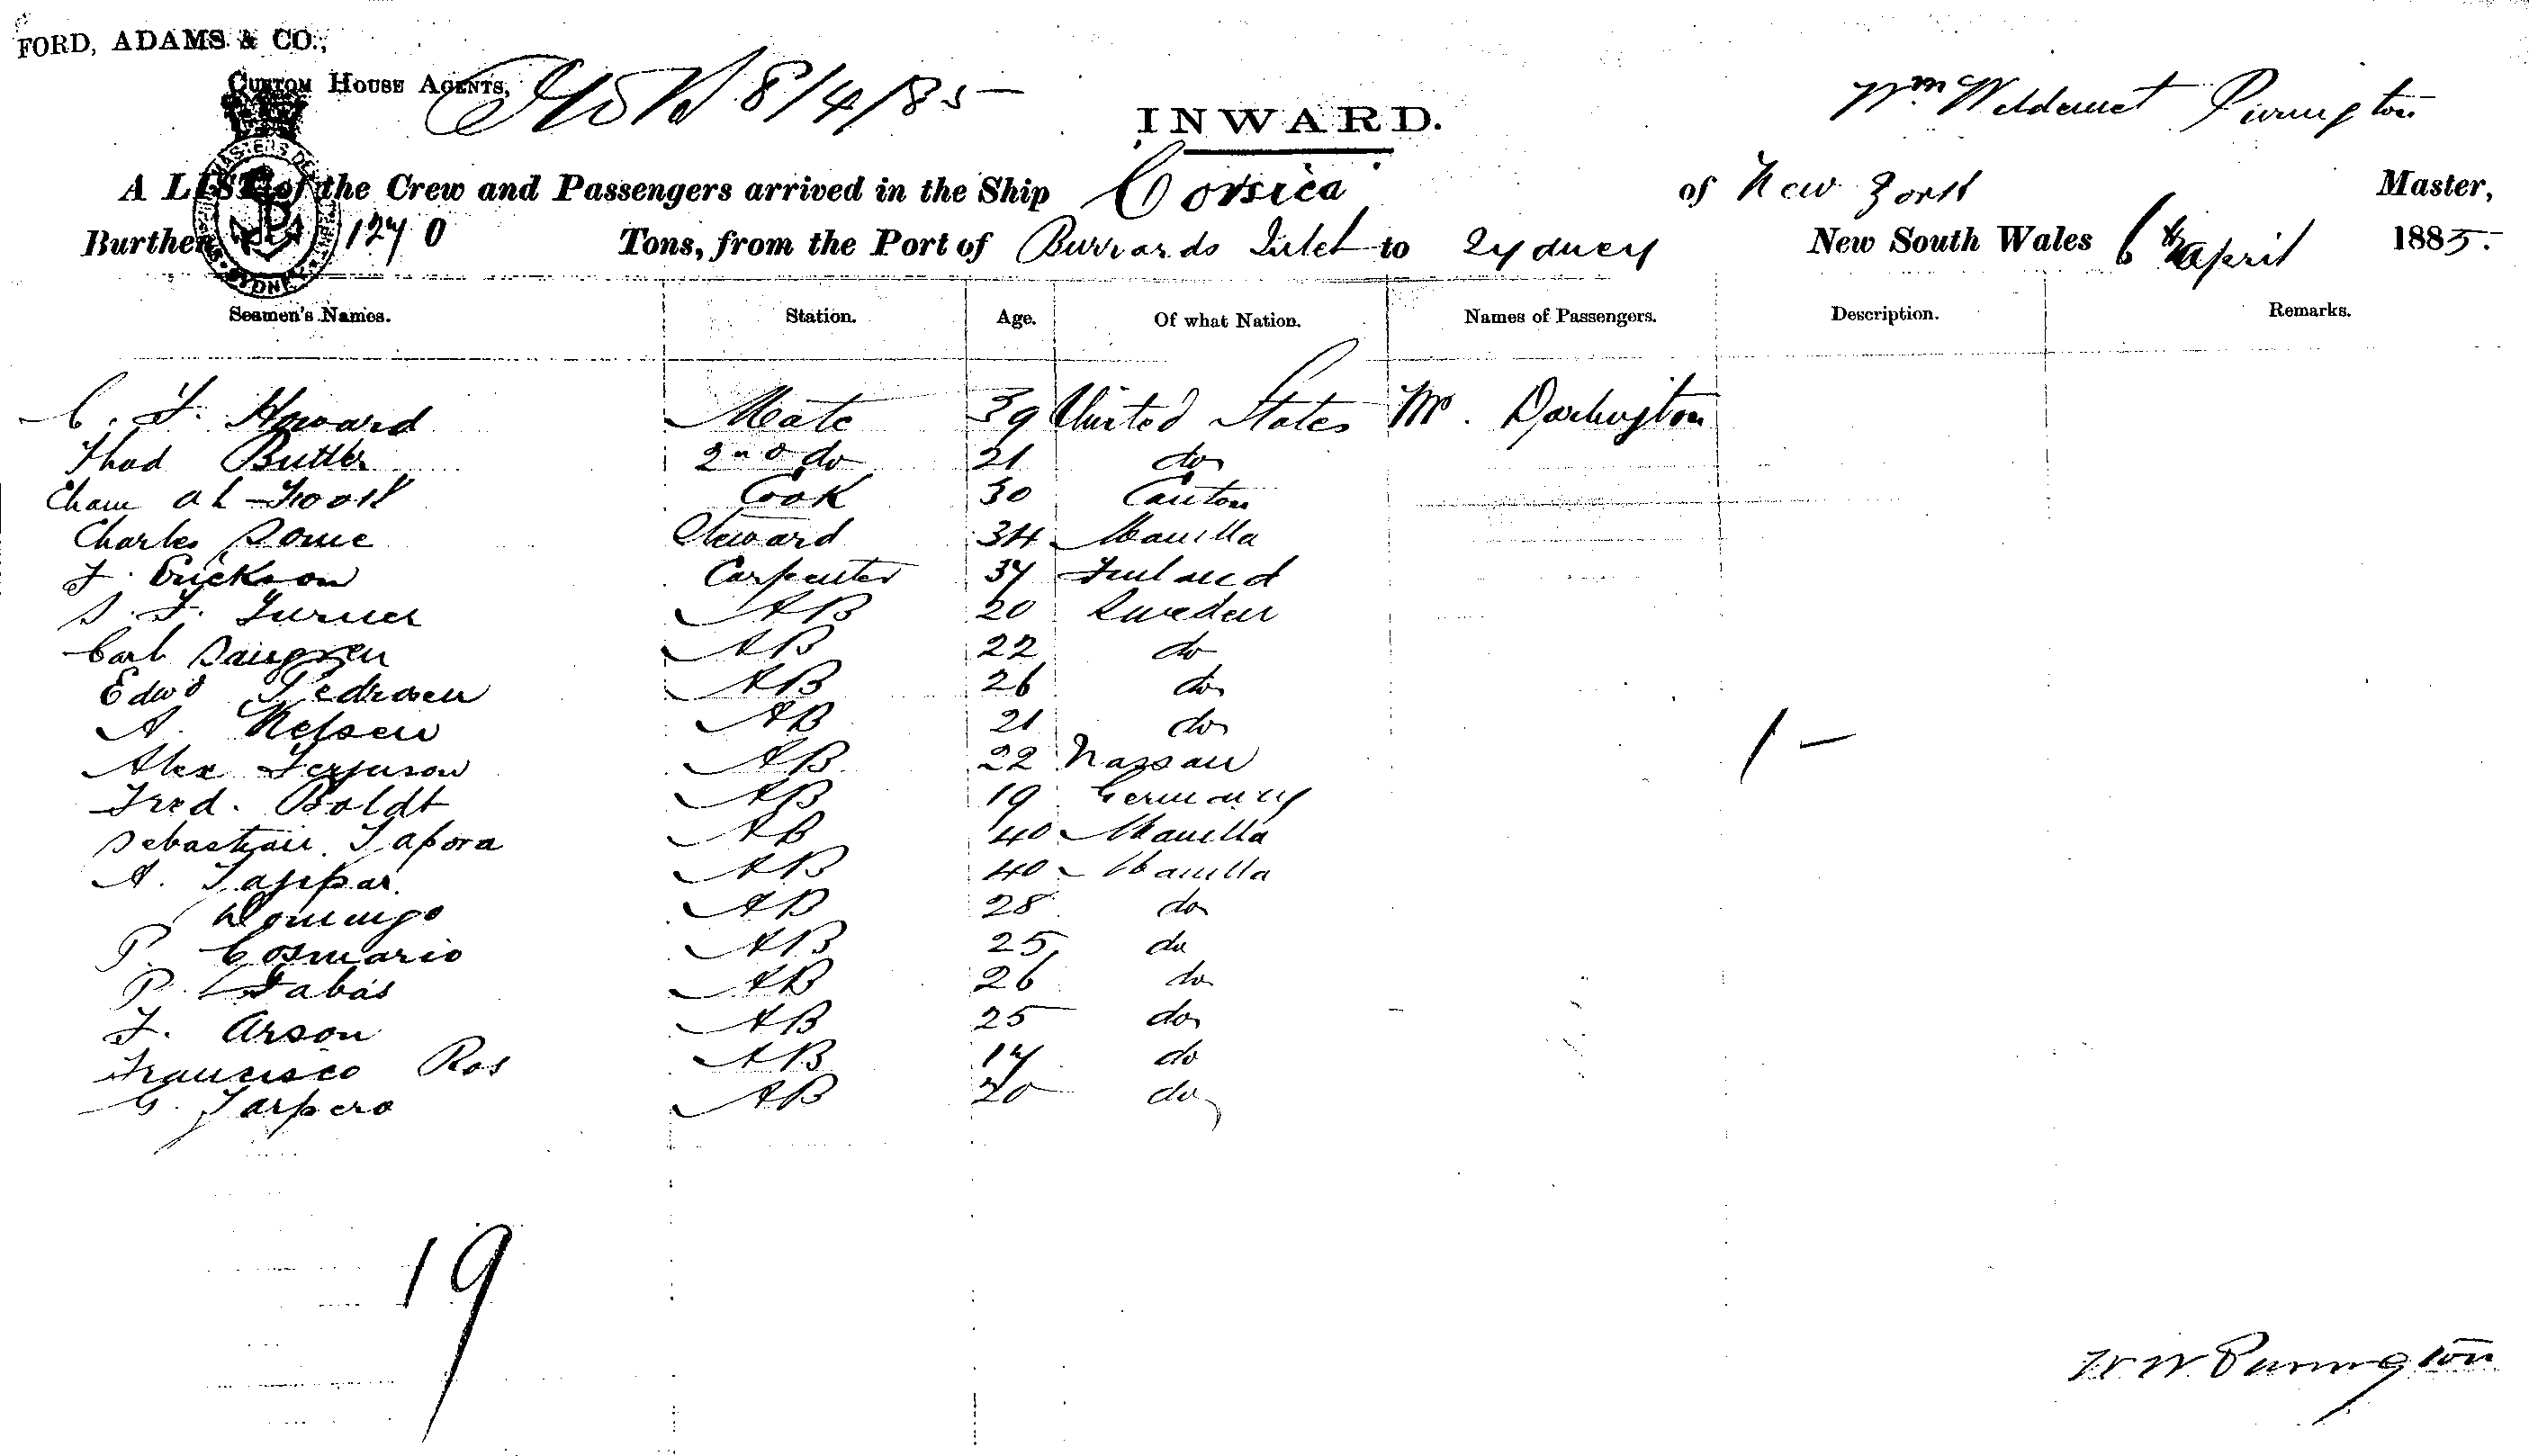 FORD, ADAMS & CO.,
CUSTOM HOUSE AGENTS,
8/4/85
INWARD.
Wm Purington
A LIST of the Crew and Passengers arrived in the Ship Corsica of New York Master,
Burthen 1270 Tons, from the Port of Burrards Inlet to Sydney New South Wales 6th April 1885.
Seamen's Names. Station. Age. Of what Nation. Names of Passengers. Description. Remarks.
C. F. Howard Mate 39 United States Mr. Darlington
Thad Butler 2nd do 21 do
Cham ah Fook Cook 30 Canton
Charles Steward 34 Manilla
F. Erickson Carpenter 37 Finland
S. F. Turner AB 20 Sweden
Carl AB 22 do
Edwd Pedrosen AB 26 do
A. Nelsen AB 21 do
Alex Ferguson AB 22 Nassau
1 -
Fred. Boldt AB 19 Germany
Sebastian Tapora AB 40 Manilla
A. Tappar. AB 40 Manilla
Domingo AB 28 do
P. Cosmario AB 25 do
P. Tabas AB 26 do
F. Arson AB 25 do
Francisco Ros AB 17 do
G. Tarpero AB 20 do
19
W W Purington